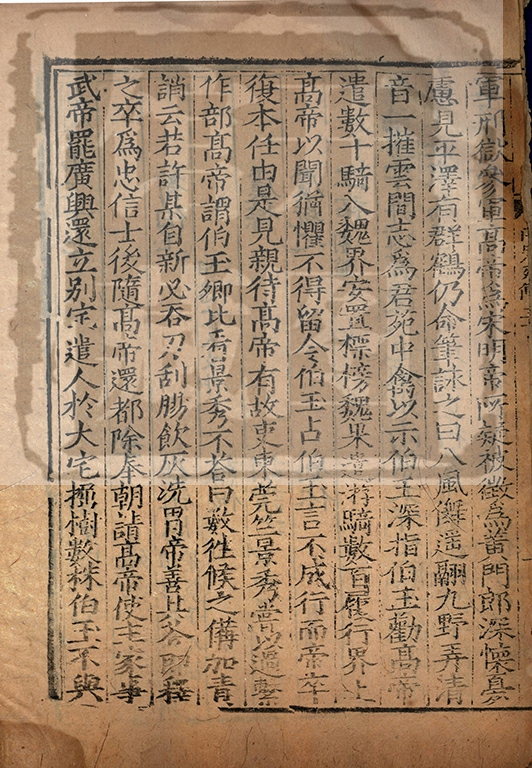 軍刑獄參軍高帝爲宋明帝所疑被徵爲黃門郎深懷憂
慮見平澤有群鶴仍命筆詠之曰八風儛遥翮九野弄清
音一摧雲間志爲君苑中禽以示伯玉深指伯玉勸高帝
遣數十騎入魏界安置標榜魏果遣游騎數百履行界上
高帝以聞猶懼不得留令伯玉占伯玉言不成行而帝卒
復本任由是見親待高帝有故吏東莞竺景秀嘗以過繫
作部高帝謂伯玉卿比看景秀不荅曰數往候之備加責
誚云若許某自新必吞刀刮腸飲灰洗胃帝善其荅即釋
之卒爲忠信士後隨高帝還都除奉朝請高帝使主家事
武帝罷廣興還立别宅遣人於大宅掘樹數株伯玉不與